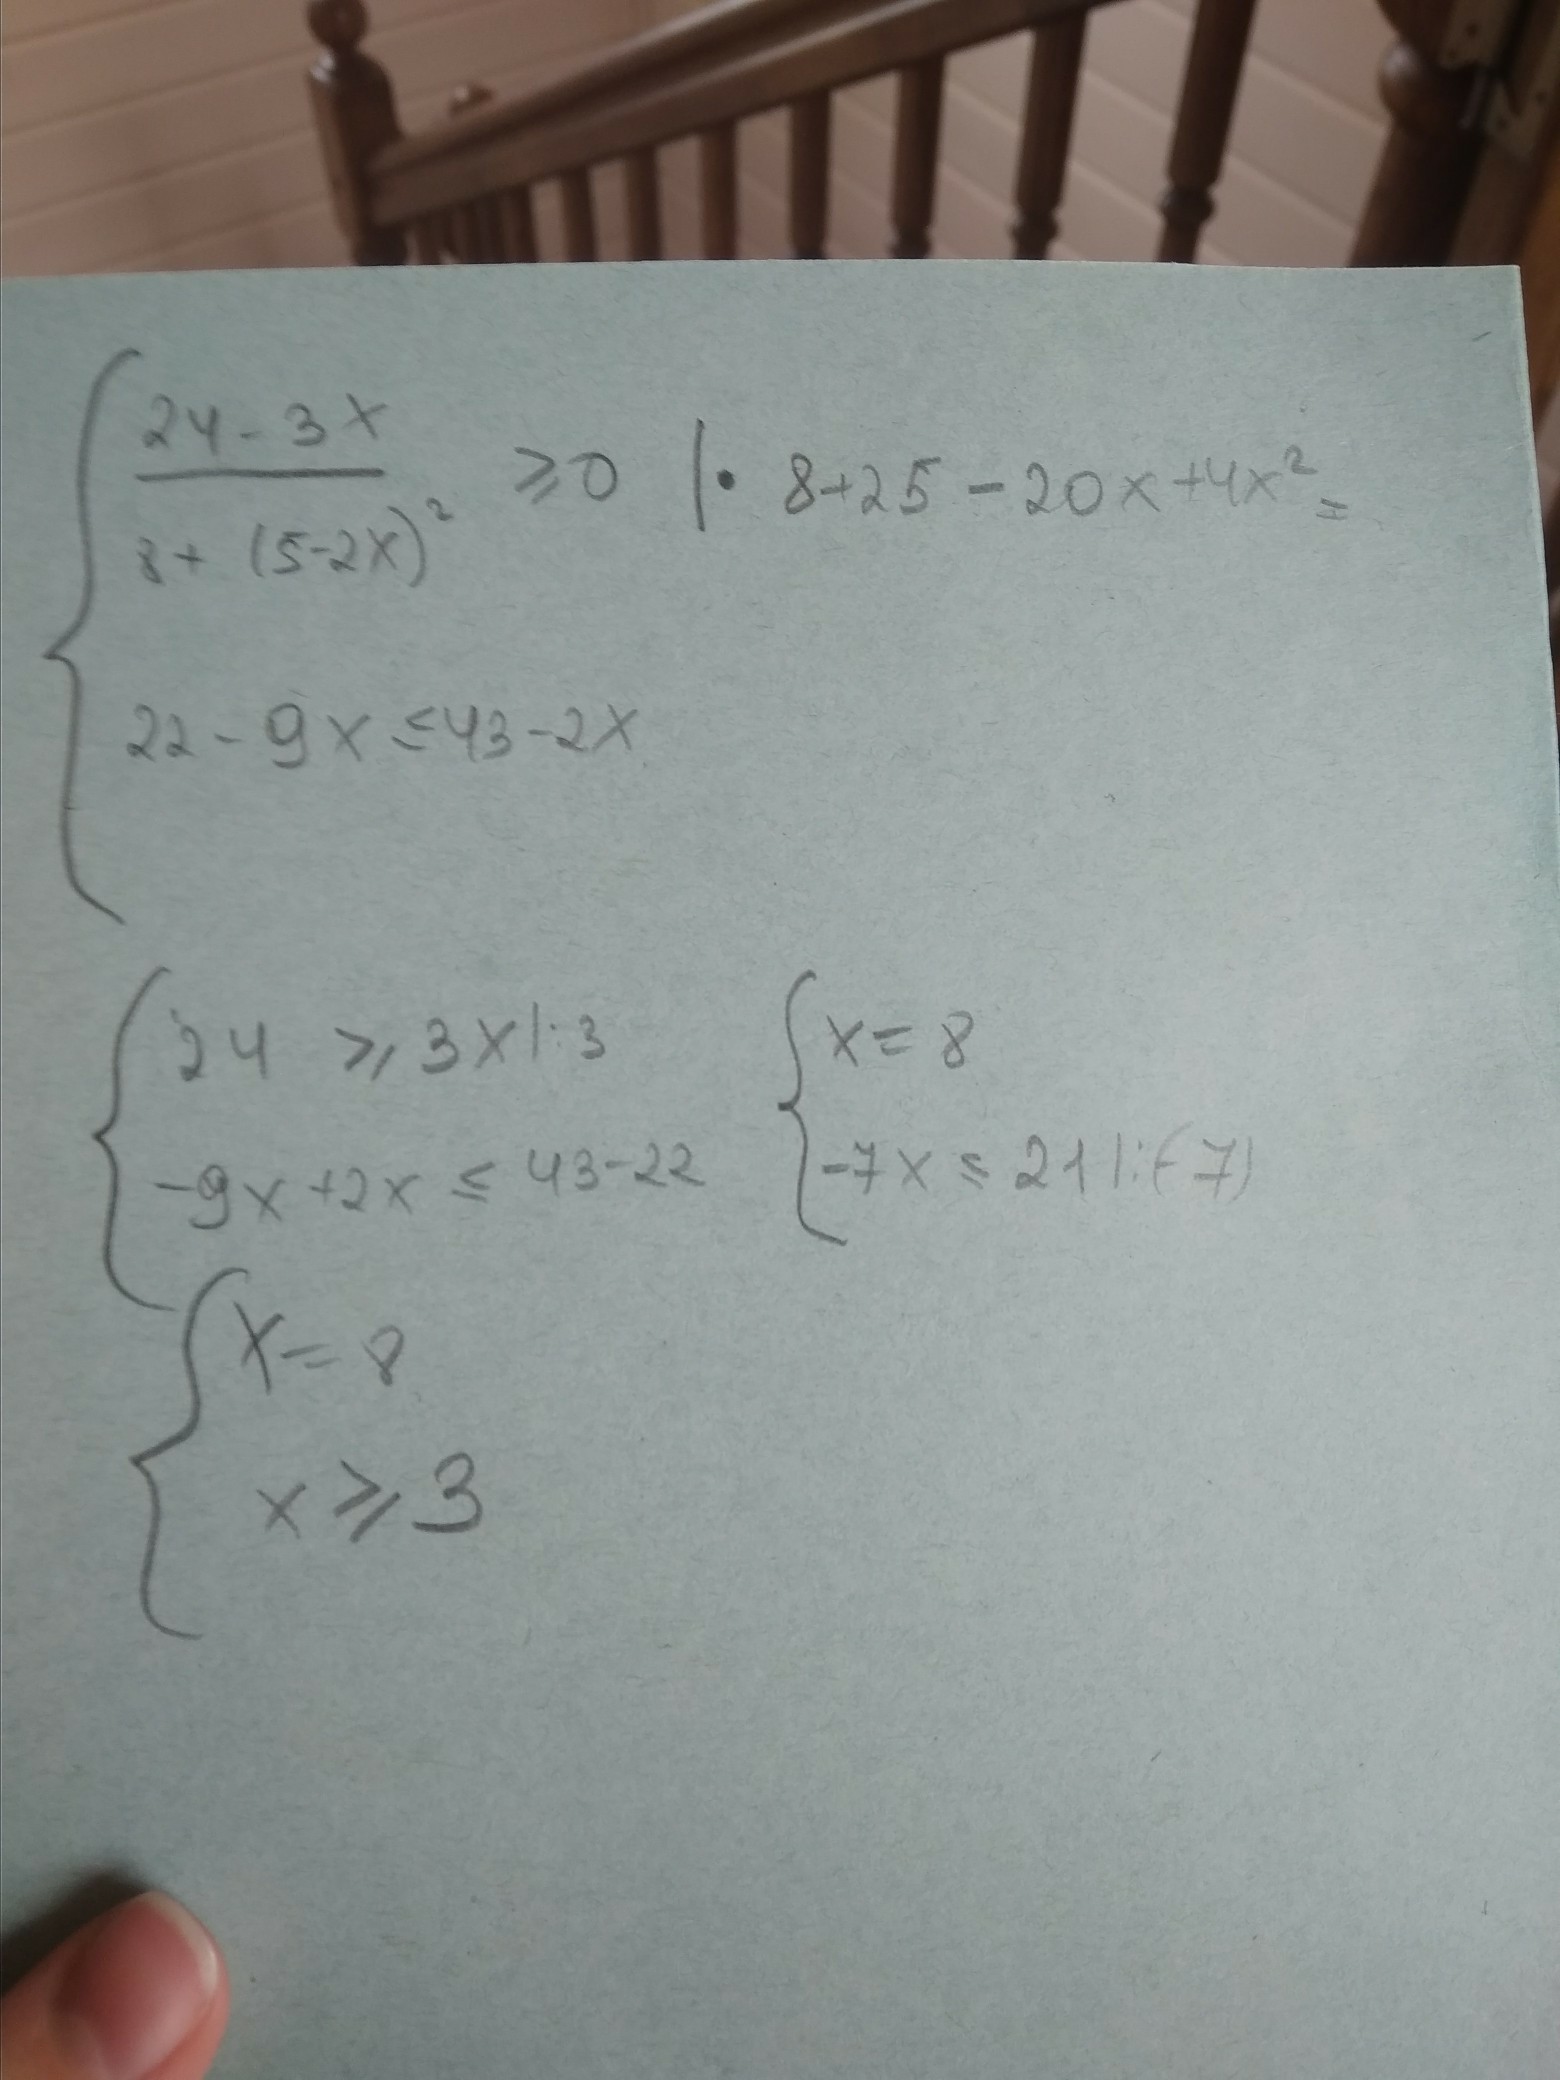 24 - 3x
8 + (5-2x)² ≥ 0 | · 8+25 - 20x+4x² =
22 - 9x ≤ 43 - 2x
24 ≥ 3x |: 3
-9x +2x ≤ 43-22
x = 8
-7x ≤ 21 |: (-7)
x = 8
x ≥ 3